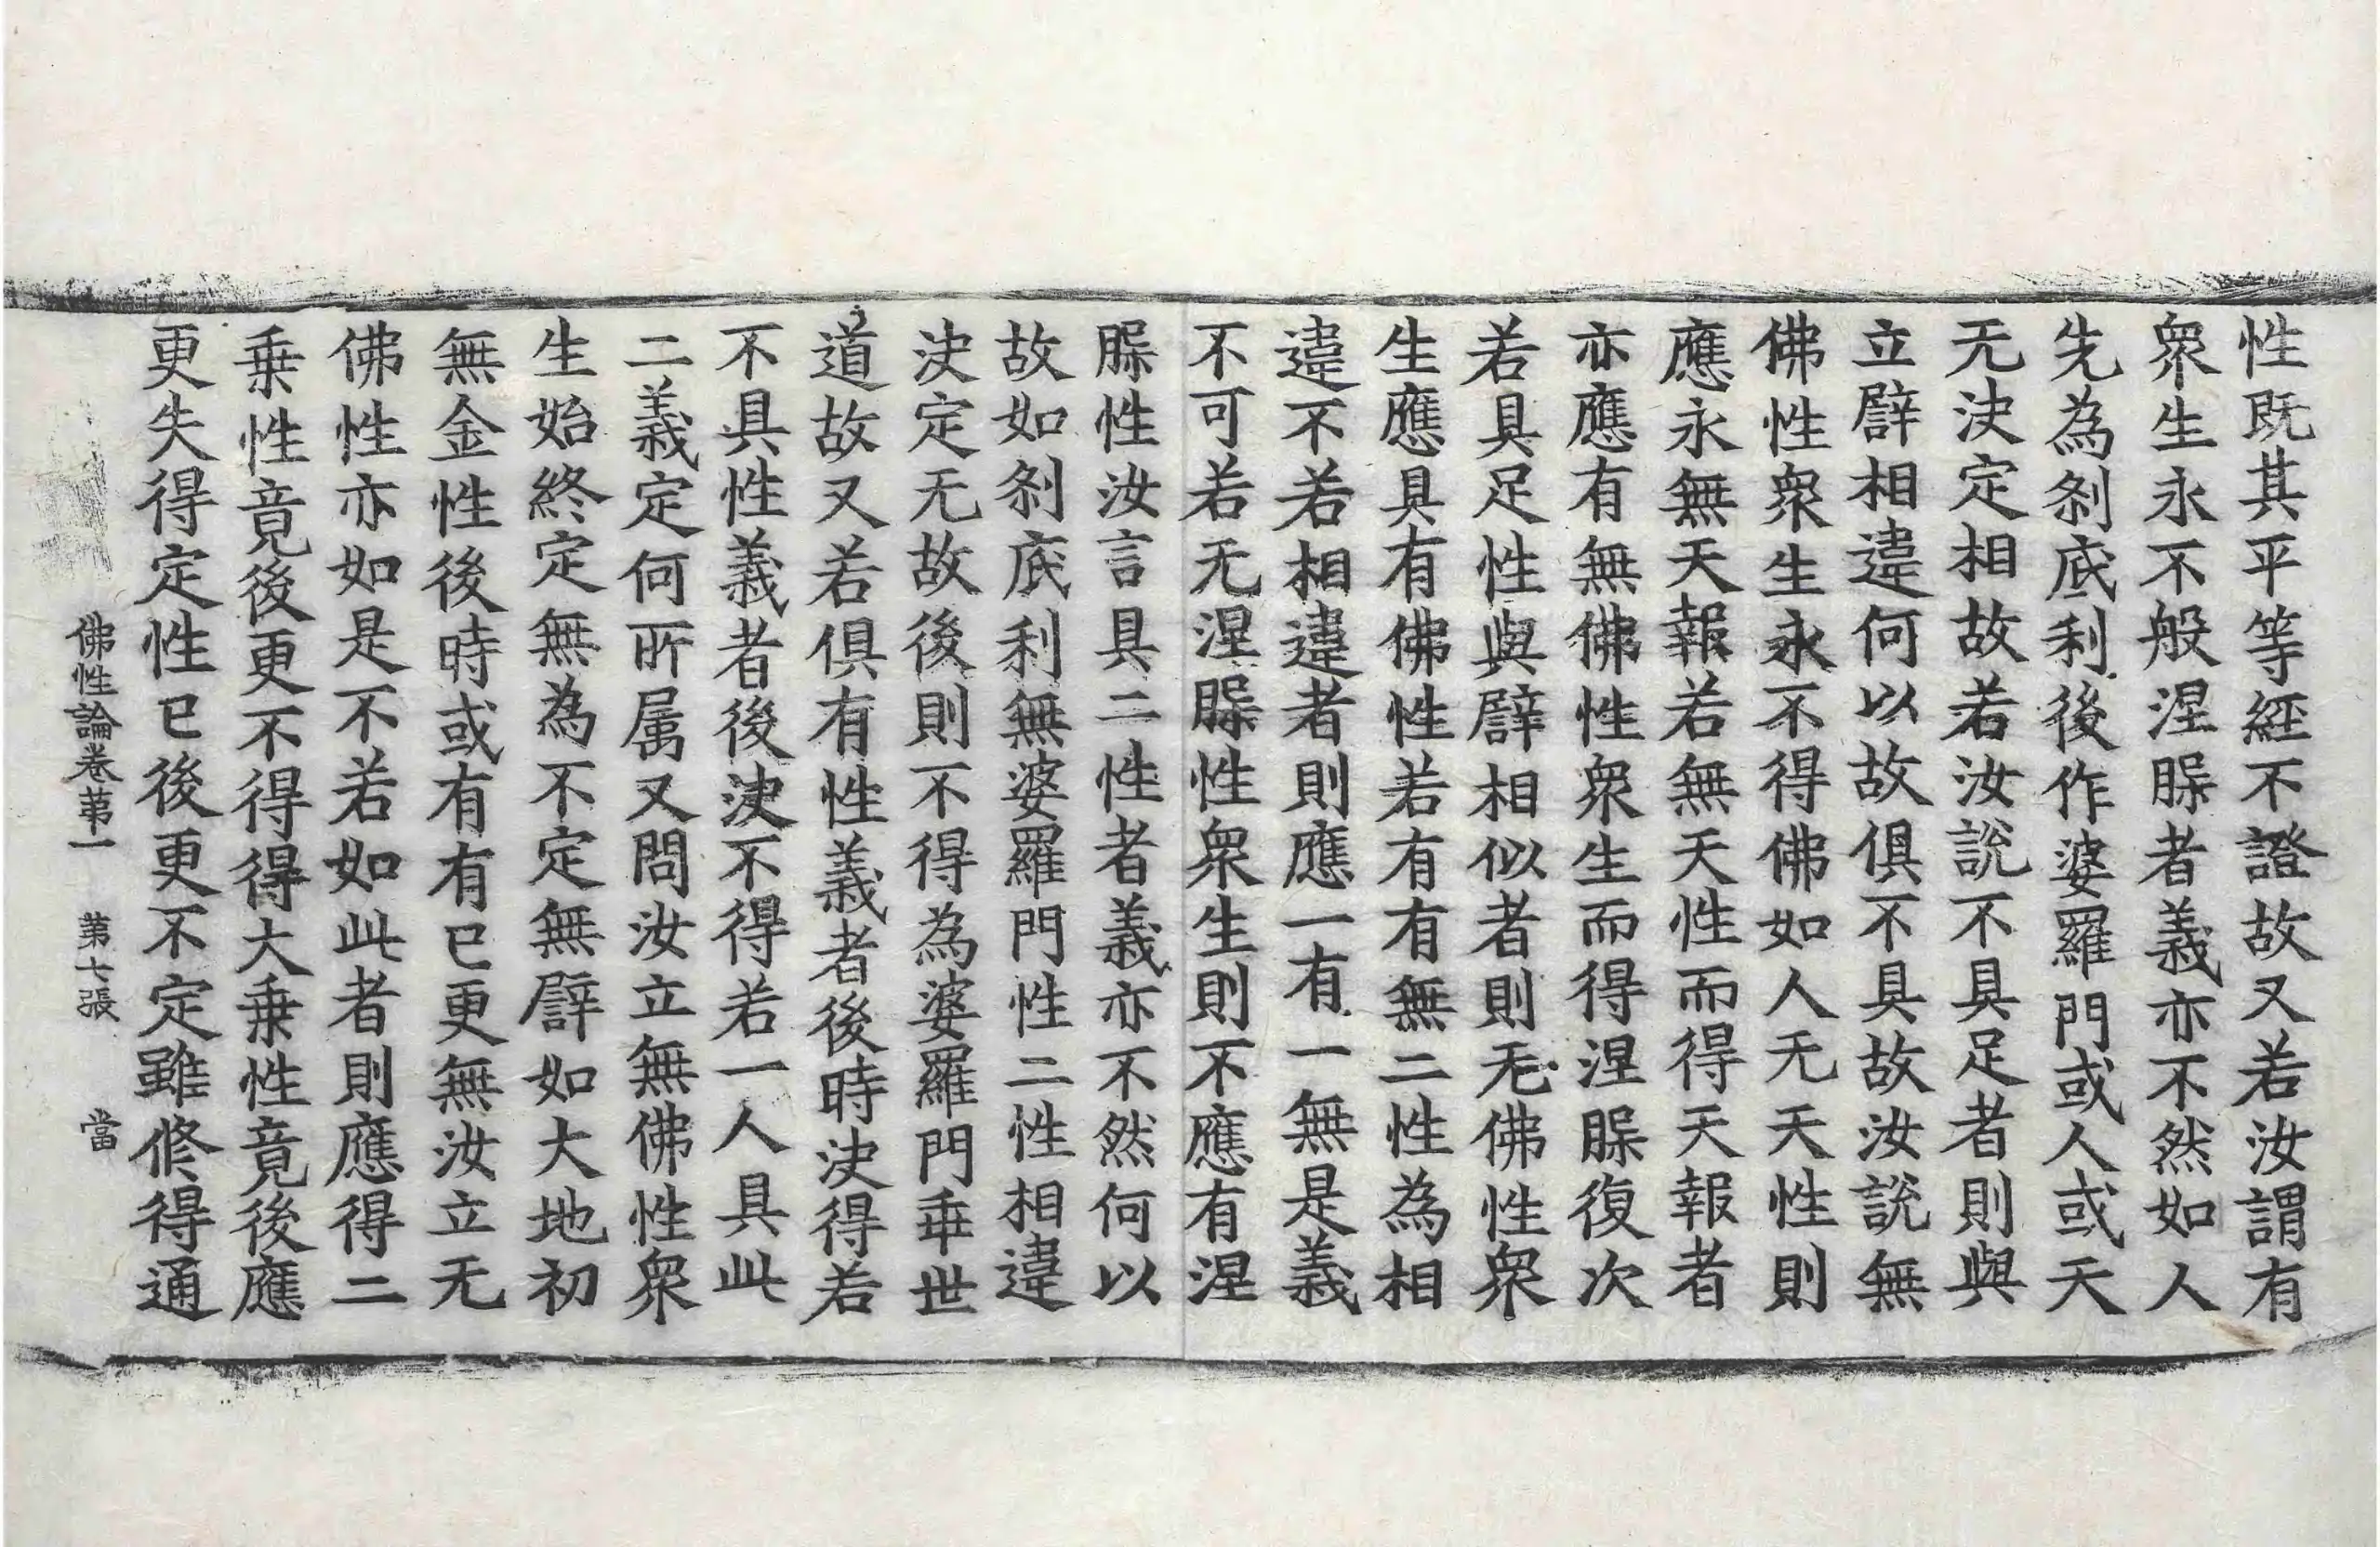 性既其平等經不證故又若汝謂有
衆生永不般涅槃者義亦不然如人
先為剎底利後作婆羅門或人或天
无決定相故若汝說不具足者則與
立譬相違何以故俱不具故汝說無
佛性衆生永不得佛如人无天性則
應永無天報若無天性而得天報者
亦應有無佛性衆生而得涅槃復次
若具足性與譬相似者則无佛性衆
生應具有佛性若有有無二性為相
違不若相違者則應一有一無是義
不可若无涅槃性衆生則不應有涅
槃性汝言具二性者義亦不然何以
故如剎底利無婆羅門性二性相違
決定无故後則不得為婆羅門乖世
道故又若俱有性義者後時決得若
不具性義者後決不得若一人具此
二義定何所属又問汝立無佛性衆
生始終定無為不定無譬如大地初
無金性後時或有有已更無汝立无
佛性亦如是不若如此者則應得二
乗性竟後更不得得大乗性竟後應
更失得定性已後更不定雖修得通
佛性論卷苐一　苐七張　當